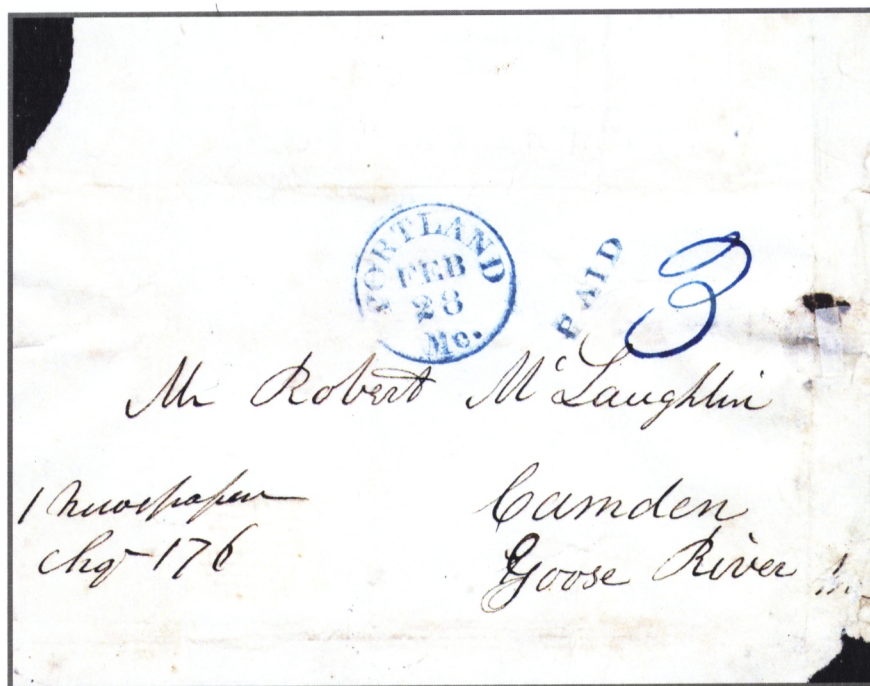 PORTLAND
FEB
28
Me.
PAID
3
Mr Robert McLaughlin
1 Newspaper
chg 176
Camden
Goose River